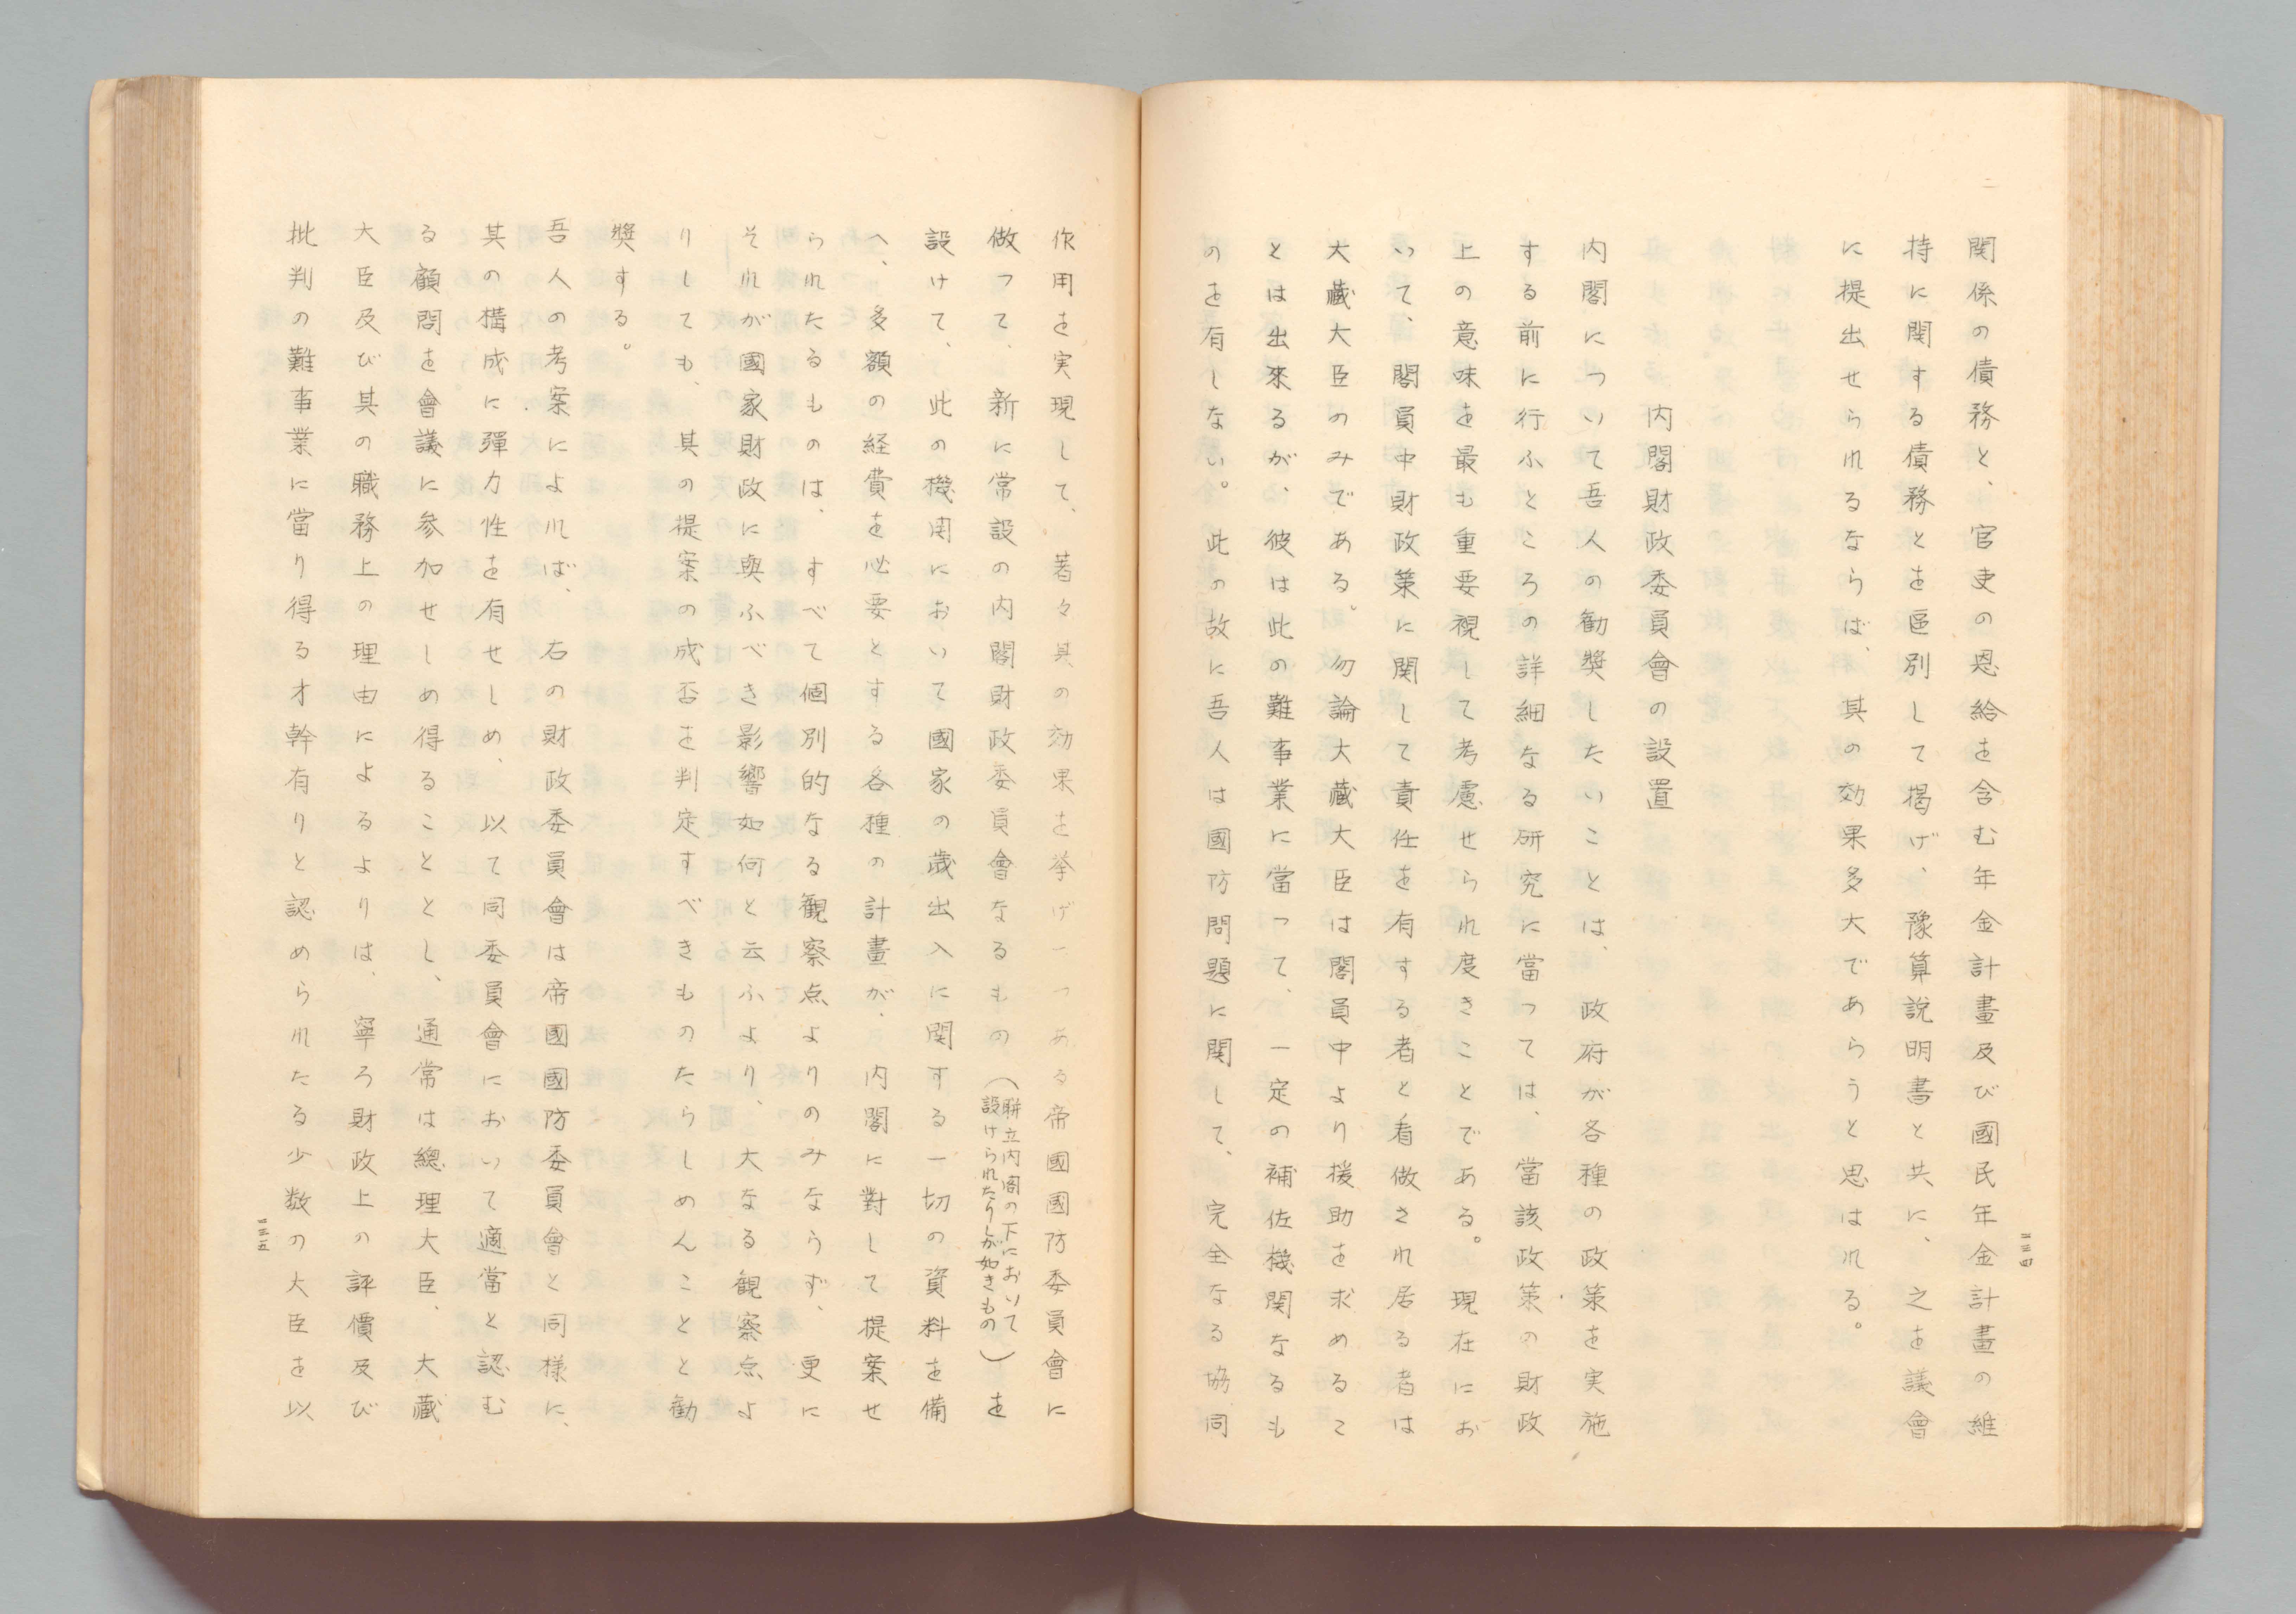 関係の債務と、官吏の恩給を含む年金計畫及び國民年金計畫の維
持に関する債務とを區別して掲げ、豫算説明書と共に、之を議會
に提出せられるならば、其の効果多大であらうと思はれる。
内閣財政委員會の設置
内閣について吾人の勧奬したいことは、政府が各種の政策を実施
する前に行ふところの詳細なる研究に當つては、當該政策の財政
上の意味を最も重要視して考慮せられ度きことである。現在にお
いて、閣員中財政策に関して責任を有する者と看做され居る者は
大藏大臣のみである。勿論大藏大臣は閣員中より援助を求めるこ
とは出來るが、彼は此の難事業に當つて、一定の補佐機関なるも
のを有しない。此の故に吾人は國防問題に関して、完全なる協同
二三四
作用を実現して、着々其の効果を挙げつつある帝國國防委員會に
做つて、新に常設の内閣財政委員會なるもの（聯立内閣の下において設けられたりしが如きもの）を
設けて、此の機関において國家の歳出入に関する一切の資料を備
へ、多額の経費を必要とする各種の計畫が、内閣に對して提案せ
られたるものは、すべて個別的なる観察点よりのみならず、更に
それが國家財政に與ふべき影響如何と云ふより、大なる観察点よ
りしても、其の提案の成否を判定すべきものたらしめんことと勧
奬する。
吾人の考案によれば、右の財政委員會は帝國國防委員會と同様に、
其の構成に彈力性を有せしめ、以て同委員會において適當と認む
る顧問を會議に参加せしめ得ることとし、通常は總理大臣、大藏
大臣及び其の職務上の理由によるよりは、寧ろ財政上の評價及び
批判の難事業に當り得る才幹有りと認められたる少数の大臣を以
二三五